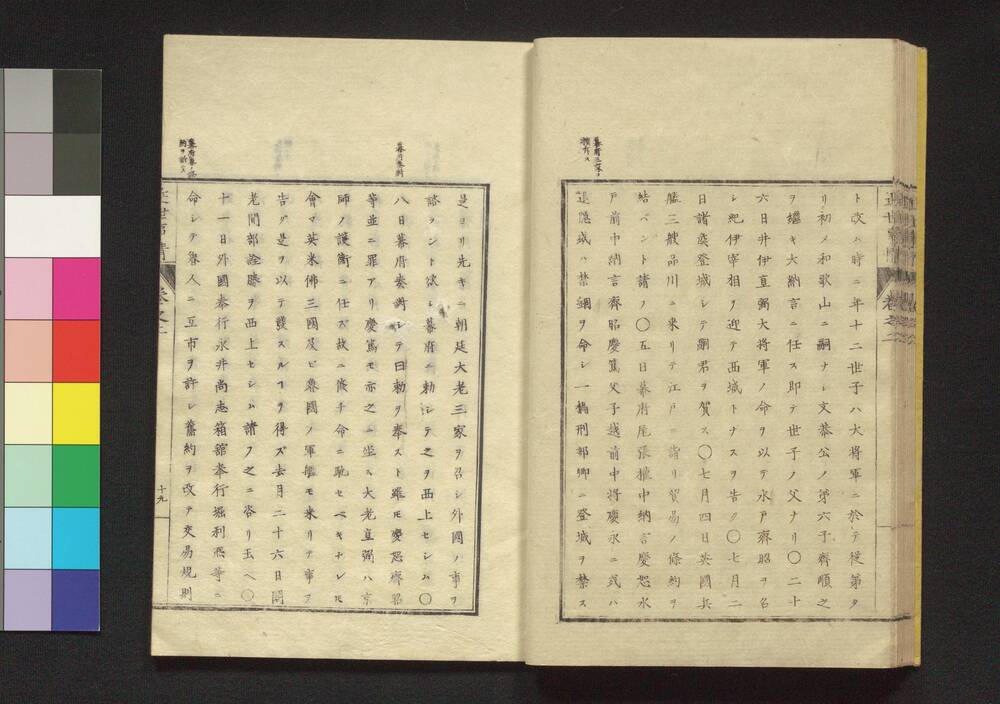 ト改ム時ニ年十二世子ハ大將軍ニ於テ從第タ
リ初メ和歌山ニ嗣ナシ文恭公ノ第六子齊順之
ヲ繼キ大納言ニ任ス即テ世子ノ父ナリ〇二十
六日井伊直弼大將軍ノ命ヲ以テ水戸齊昭ヲ名
シ紀伊宰相ヲ迎テ西城トナスヲ告ク〇七月二
日諸矦登城シテ嗣君ヲ賀ス〇七月四日英國兵
艦三艘品川ニ来リテ江戸請リ貿易ノ條約ヲ
結ベント請フ〇五日幕府尾張權中納言慶恕水
戸前中納言齊昭慶篤父子越前中將慶永ニ或ハ
退隠或ハ禁錮ヲ命シ一橋刑部卿ニ登城ヲ禁ス
是ヨリ先キニ朝廷大老三家ヲ召シ外國ノ事ヲ
諮ラント欲シ幕府ニ勅シテ之ヲ西上セシム〇
八日幕府奏シテ曰勅ヲ奉スト雖モ慶恕齊昭
等並ニ罪アリ慶篤モ亦之ニ坐ス大老直弼ハ京
師ノ護衛ニ任ズ故ニ俟チ命ニ馳セベキナレモ
會マ英米佛三國及ビ魯國ノ軍艦モ来リテ事ヲ
告グ是ヲ以テ發スルヿヲ得ズ去月二十六日閣
老間部詮勝ヲ西上セシム請フ之ニ咨リ玉ヘ〇
十一日外國奉行永井尚志箱舘奉行堀利熈等ニ
命シテ魯人ニ互市ヲ許シ舊約ヲ改テ交易規則
十九